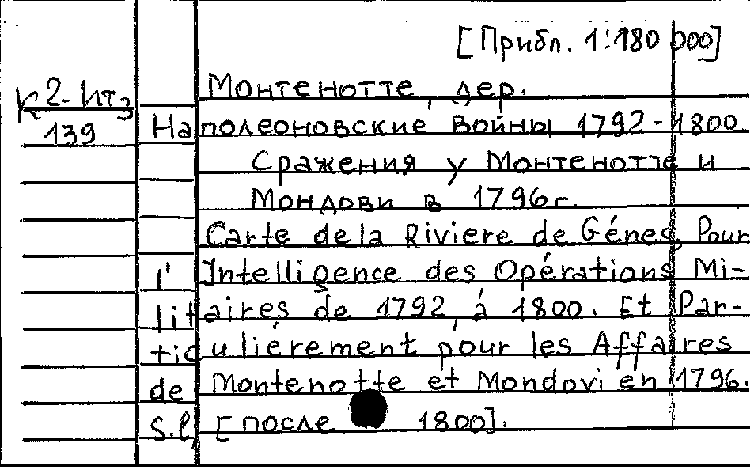 [Прибл. 1:180 000]
К2-Итз
139
Монтенотте, дер.
Наполеоновские войны 1792-1800
Сражения у Монтенотте и
Мондови в 1796г.
Carte de la Riviere de Génes, Pour
l'Intelligence des Opérations Mi-
litaires de 1792 à 1800. Et Par-
ticulièrement pour les Affaires
de Montenotte et Mondovi en 1796.
S.l, [после 1800].